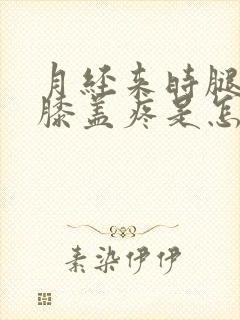 月经来时腿
膝盖疼是怎
素染伊伊